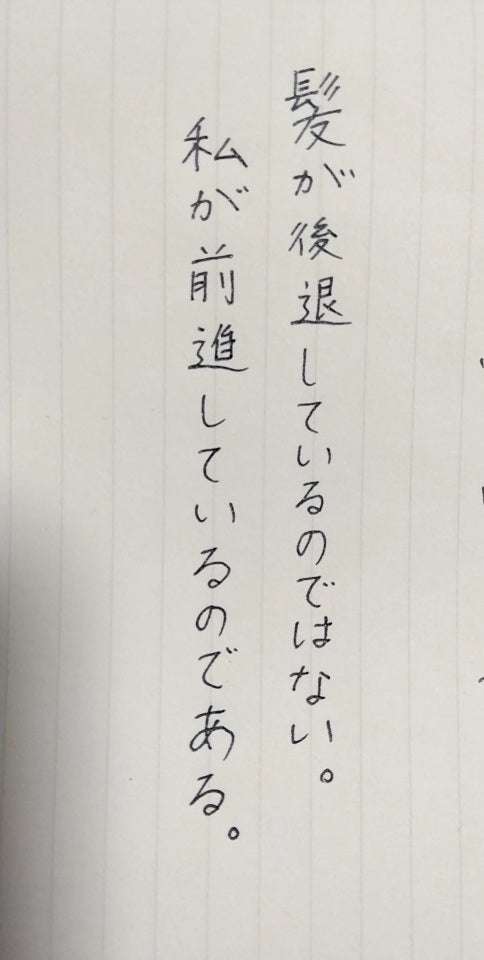 髪が後退しているのではない。
私が前進しているのである。